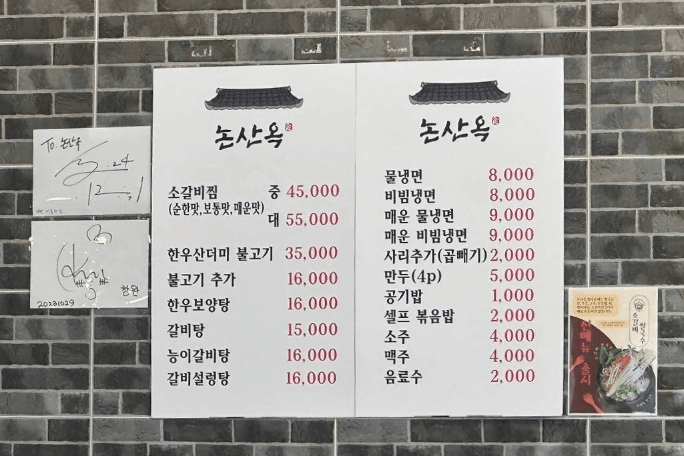 논산옥
소갈비찜 중 45,000
(순한맛,보통맛,매운맛)
대 55,000
한우산더미 불고기 35,000
불고기 추가 16,000
한우보양탕 16,000
갈비탕 15,000
능이갈비탕 16,000
갈비설렁탕 16,000
논산옥
물냉면 8,000
비빔냉면 8,000
매운 물냉면 9,000
매운 비빔냉면 9,000
사리추가(곱빼기) 2,000
만두(4p) 5,000
공기밥 1,000
셀프 볶음밥 2,000
소주 4,000
맥주 4,000
음료수 2,000
To. 논산옥
20231029
신메뉴 출시